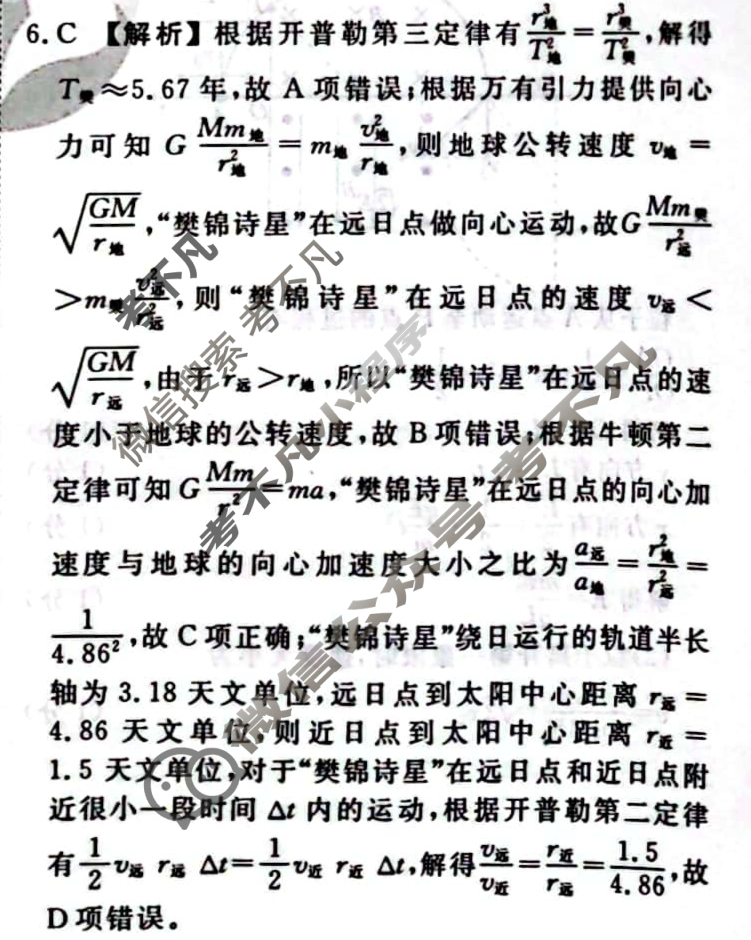 6. C 【解析】根据开普勒第三定律有 r³地/T²地 = r³樊/T²樊, 解得
T樊≈5.67 年,故 A 项错误;根据万有引力提供向心
力可知 G Mm地/r²地 = m地 v²地/r地, 则地球公转速度 v地 =
√(GM/r地), “樊锦诗星”在远日点做向心运动,故G Mm樊/r²远
>m樊 v²远/r²远, 则“樊锦诗星”在远日点的速度 v远 <
√(GM/r远), 由于 r远>r地,所以“樊锦诗星”在远日点的速
度小于地球的公转速度,故 B 项错误;根据牛顿第二
定律可知 G Mm/r²=ma,“樊锦诗星”在远日点的向心加
速度与地球的向心加速度大小之比为 a远/a地 = r²地/r²远 =
1/4.86², 故 C 项正确;“樊锦诗星”绕日运行的轨道半长
轴为 3.18 天文单位,远日点到太阳中心距离 r远 =
4.86 天文单位,则近日点到太阳中心距离 r近 =
1.5 天文单位,对于“樊锦诗星”在远日点和近日点附
近很小一段时间 Δt 内的运动,根据开普勒第二定律
有 1/2 v远 r远 Δt= 1/2 v近 r近 Δt,解得 v远/v近 = r近/r远 = 1.5/4.86, 故
D 项错误。
微信搜索 考不凡
考不凡小程序
微信公众号 考不凡